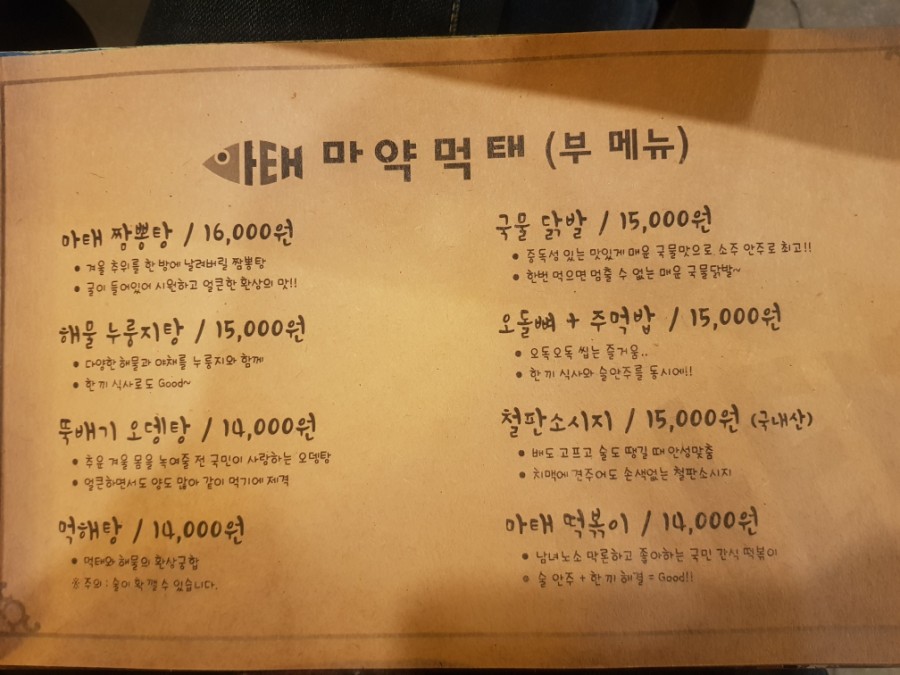 마태 마약 먹태 (부 메뉴)
마태 짬뽕탕 / 16,000원
• 겨울 추위를 한 방에 날려버릴 짬뽕탕
• 굴이 들어있어 시원하고 얼큰한 환상의 맛!!
해물 누룽지탕 / 15,000원
• 다양한 해물과 야채를 누룽지와 함께
• 한 끼 식사로도 Good~
뚝배기 오뎅탕 / 14,000원
• 추운 겨울 몸을 녹여줄 전 국민이 사랑하는 오뎅탕
• 얼큰하면서도 양도 많아 같이 먹기에 제격
먹해탕 / 14,000원
• 먹태와 해물의 환상궁합
※ 주의 : 술이 확 깰 수 있습니다.
국물 닭발 / 15,000원
• 중독성 있는 맛있게 매운 국물맛으로 소주 안주로 최고!!
• 한번 먹으면 멈출 수 없는 매운 국물닭발~
오돌뼈 + 주먹밥 / 15,000원
• 오독오독 씹는 즐거움..
• 한 끼 식사와 술안주를 동시에!!
철판소시지 / 15,000원 (국내산)
• 배도 고프고 술도 땡길 때 안성맞춤
• 치맥에 견주어도 손색없는 철판소시지
마태 떡볶이 / 14,000원
• 남녀노소 막론하고 좋아하는 국민 간식 떡볶이
• 술 안주 + 한 끼 해결 = Good!!